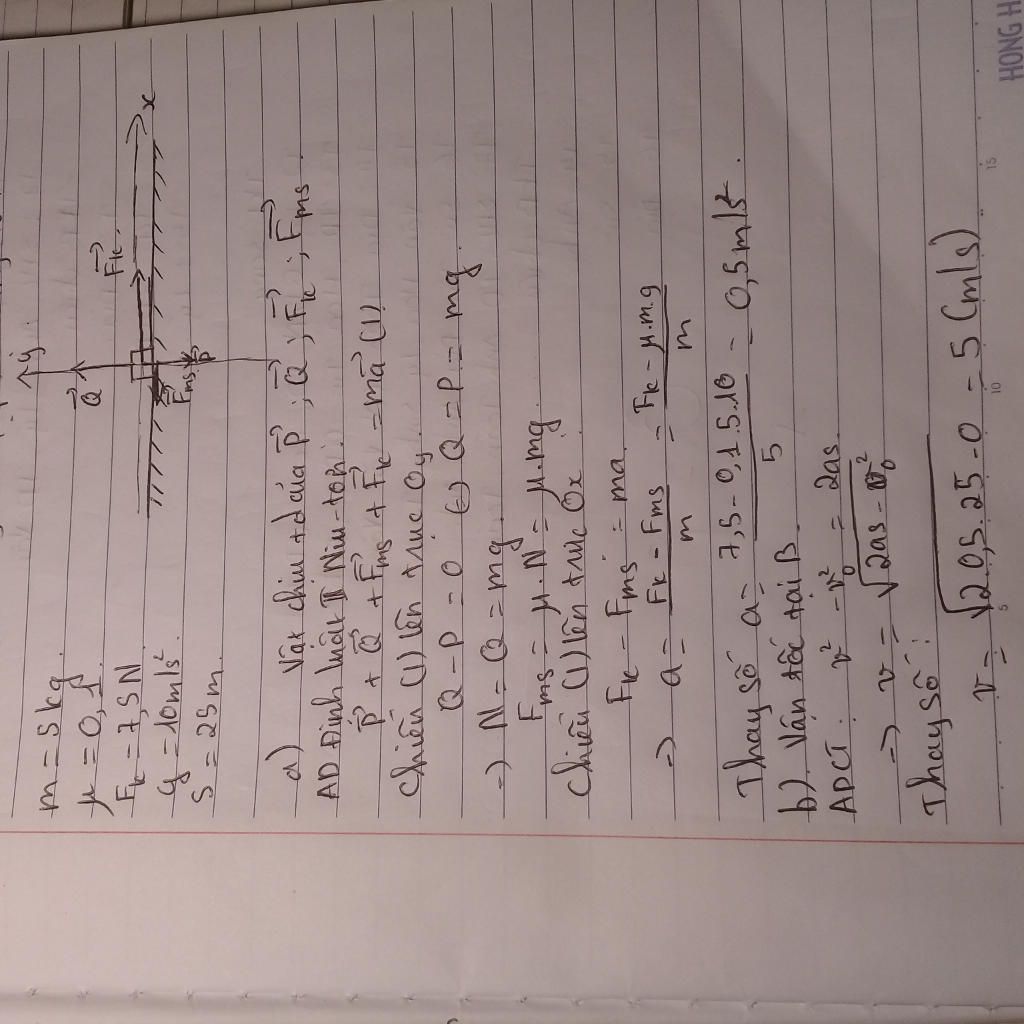 m = 5 kg
μ = 0,1
Fk = 7,5 N
g = 10 m/s²
S = 25 m
y
Q
Fk
x
Fms
P
a) Vật chịu t/d của P ; Q ; Fk ; Fms
AD Định luật II Niu-tơn
P + Q + Fms + Fk = ma (1)
Chiếu (1) lên trục Oy
Q - P = 0 (=) Q = P = mg
=> N = Q = mg.
Fms = μ.N = μ.mg
Chiếu (1) lên trục Ox
Fk - Fms = ma
=> a = (Fk - Fms)/m = (Fk - μ.m.g)/m
Thay số a = (7,5 - 0,1.5.10)/5 = 0,5 m/s².
b) Vận tốc tại B
ADCT: v² - v₀² = 2as
=> v = √(2as - v₀²)
Thay số:
v = √(2.0,5.25 - 0) = 5 (m/s)
HONG H
5 10 15